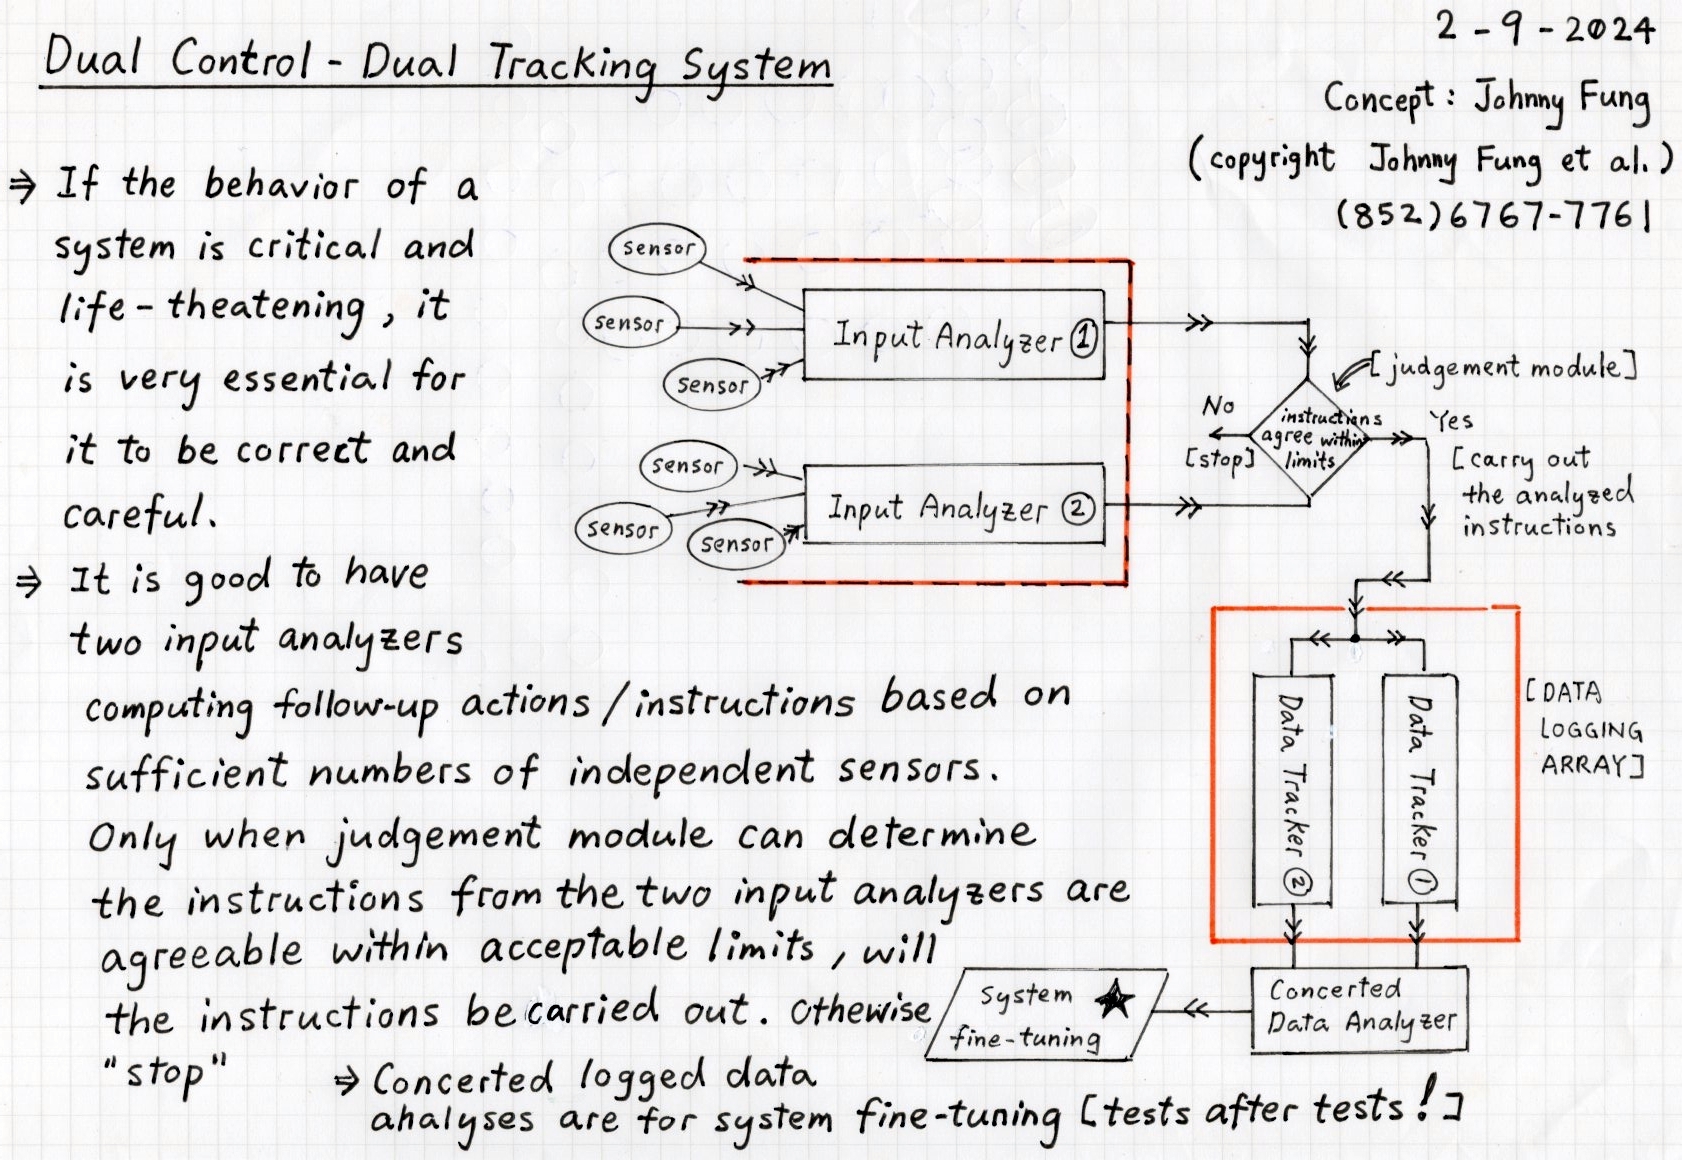 Dual Control - Dual Tracking System
2 - 9 - 2024
Concept : Johnny Fung
(copyright Johnny Fung et al.)
(852)6767-7761
⇒ If the behavior of a
system is critical and
life - theatening , it
is very essential for
it to be correct and
careful.
⇒ It is good to have
two input analyzers
computing follow-up actions / instructions based on
sufficient numbers of independent sensors.
Only when judgement module can determine
the instructions from the two input analyzers are
agreeable within acceptable limits , will
the instructions be carried out. Othewise
"stop"
⇒ Concerted logged data
analyses are for system fine-tuning [tests after tests!]
sensor
sensor
sensor
Input Analyzer ①
sensor
sensor
sensor
Input Analyzer ②
[judgement module]
instructions
agree within
limits
No
[stop]
Yes
[carry out
the analyzed
instructions
Data Tracker ②
Data Tracker ①
[DATA
LOGGING
ARRAY]
Concerted
Data Analyzer
System ★
fine-tuning